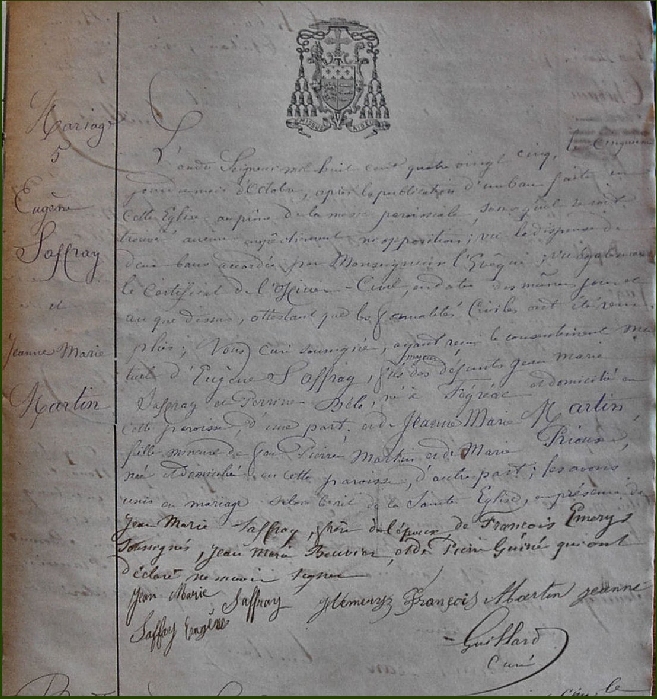 Mariage
5
Eugène
Saffray
et
Jeanne Marie
Martin
L'an du Seigneur mil huit cent quatre vingt cinq, le cinquième
jour du mois d'Octobre, après la publication d'un ban faite en
cette Eglise au prône de la messe paroissiale, sans qu'il se soit
trouvé aucun empêchement ni opposition; vu la dispense de
deux bans accordée par Monseigneur l'Evêque; vu également
le certificat de l'Officier Civil, en date des mêmes jour et
an que dessus, attestant que les formalités Civiles ont été rem
plies; Nous Curé soussigné, ayant reçu le consentement mu
tuel d'Eugène Saffray, fils des défunts Jean Marie
Saffray et Perrine né à et domicilié en
cette paroisse, d'une part, et de Jeanne Marie Martin,
fille mineure de Pierre Martin et de Marie
née et domiciliée en cette paroisse, d'autre part; les avons
unis en mariage selon le rit de la Sainte Eglise, en présence de
Jean Marie Saffray, frère de l'époux, de François Emerys
soussignés, Jean Marie Bouvier, et de Guiné qui ont
déclaré ne savoir signer
Jean Marie Saffray François Martin jeanne
Saffray Eugène
Guillard
Curé